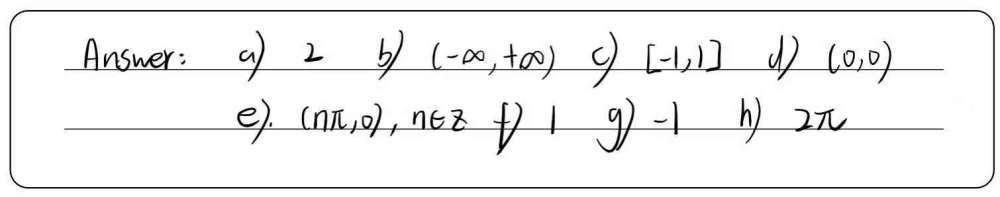 Answer: a) 2 b) (-∞, +∞) c) [-1,1] d) (0,0)
e). (nπ,0), n∈z f) 1 g) -1 h) 2π